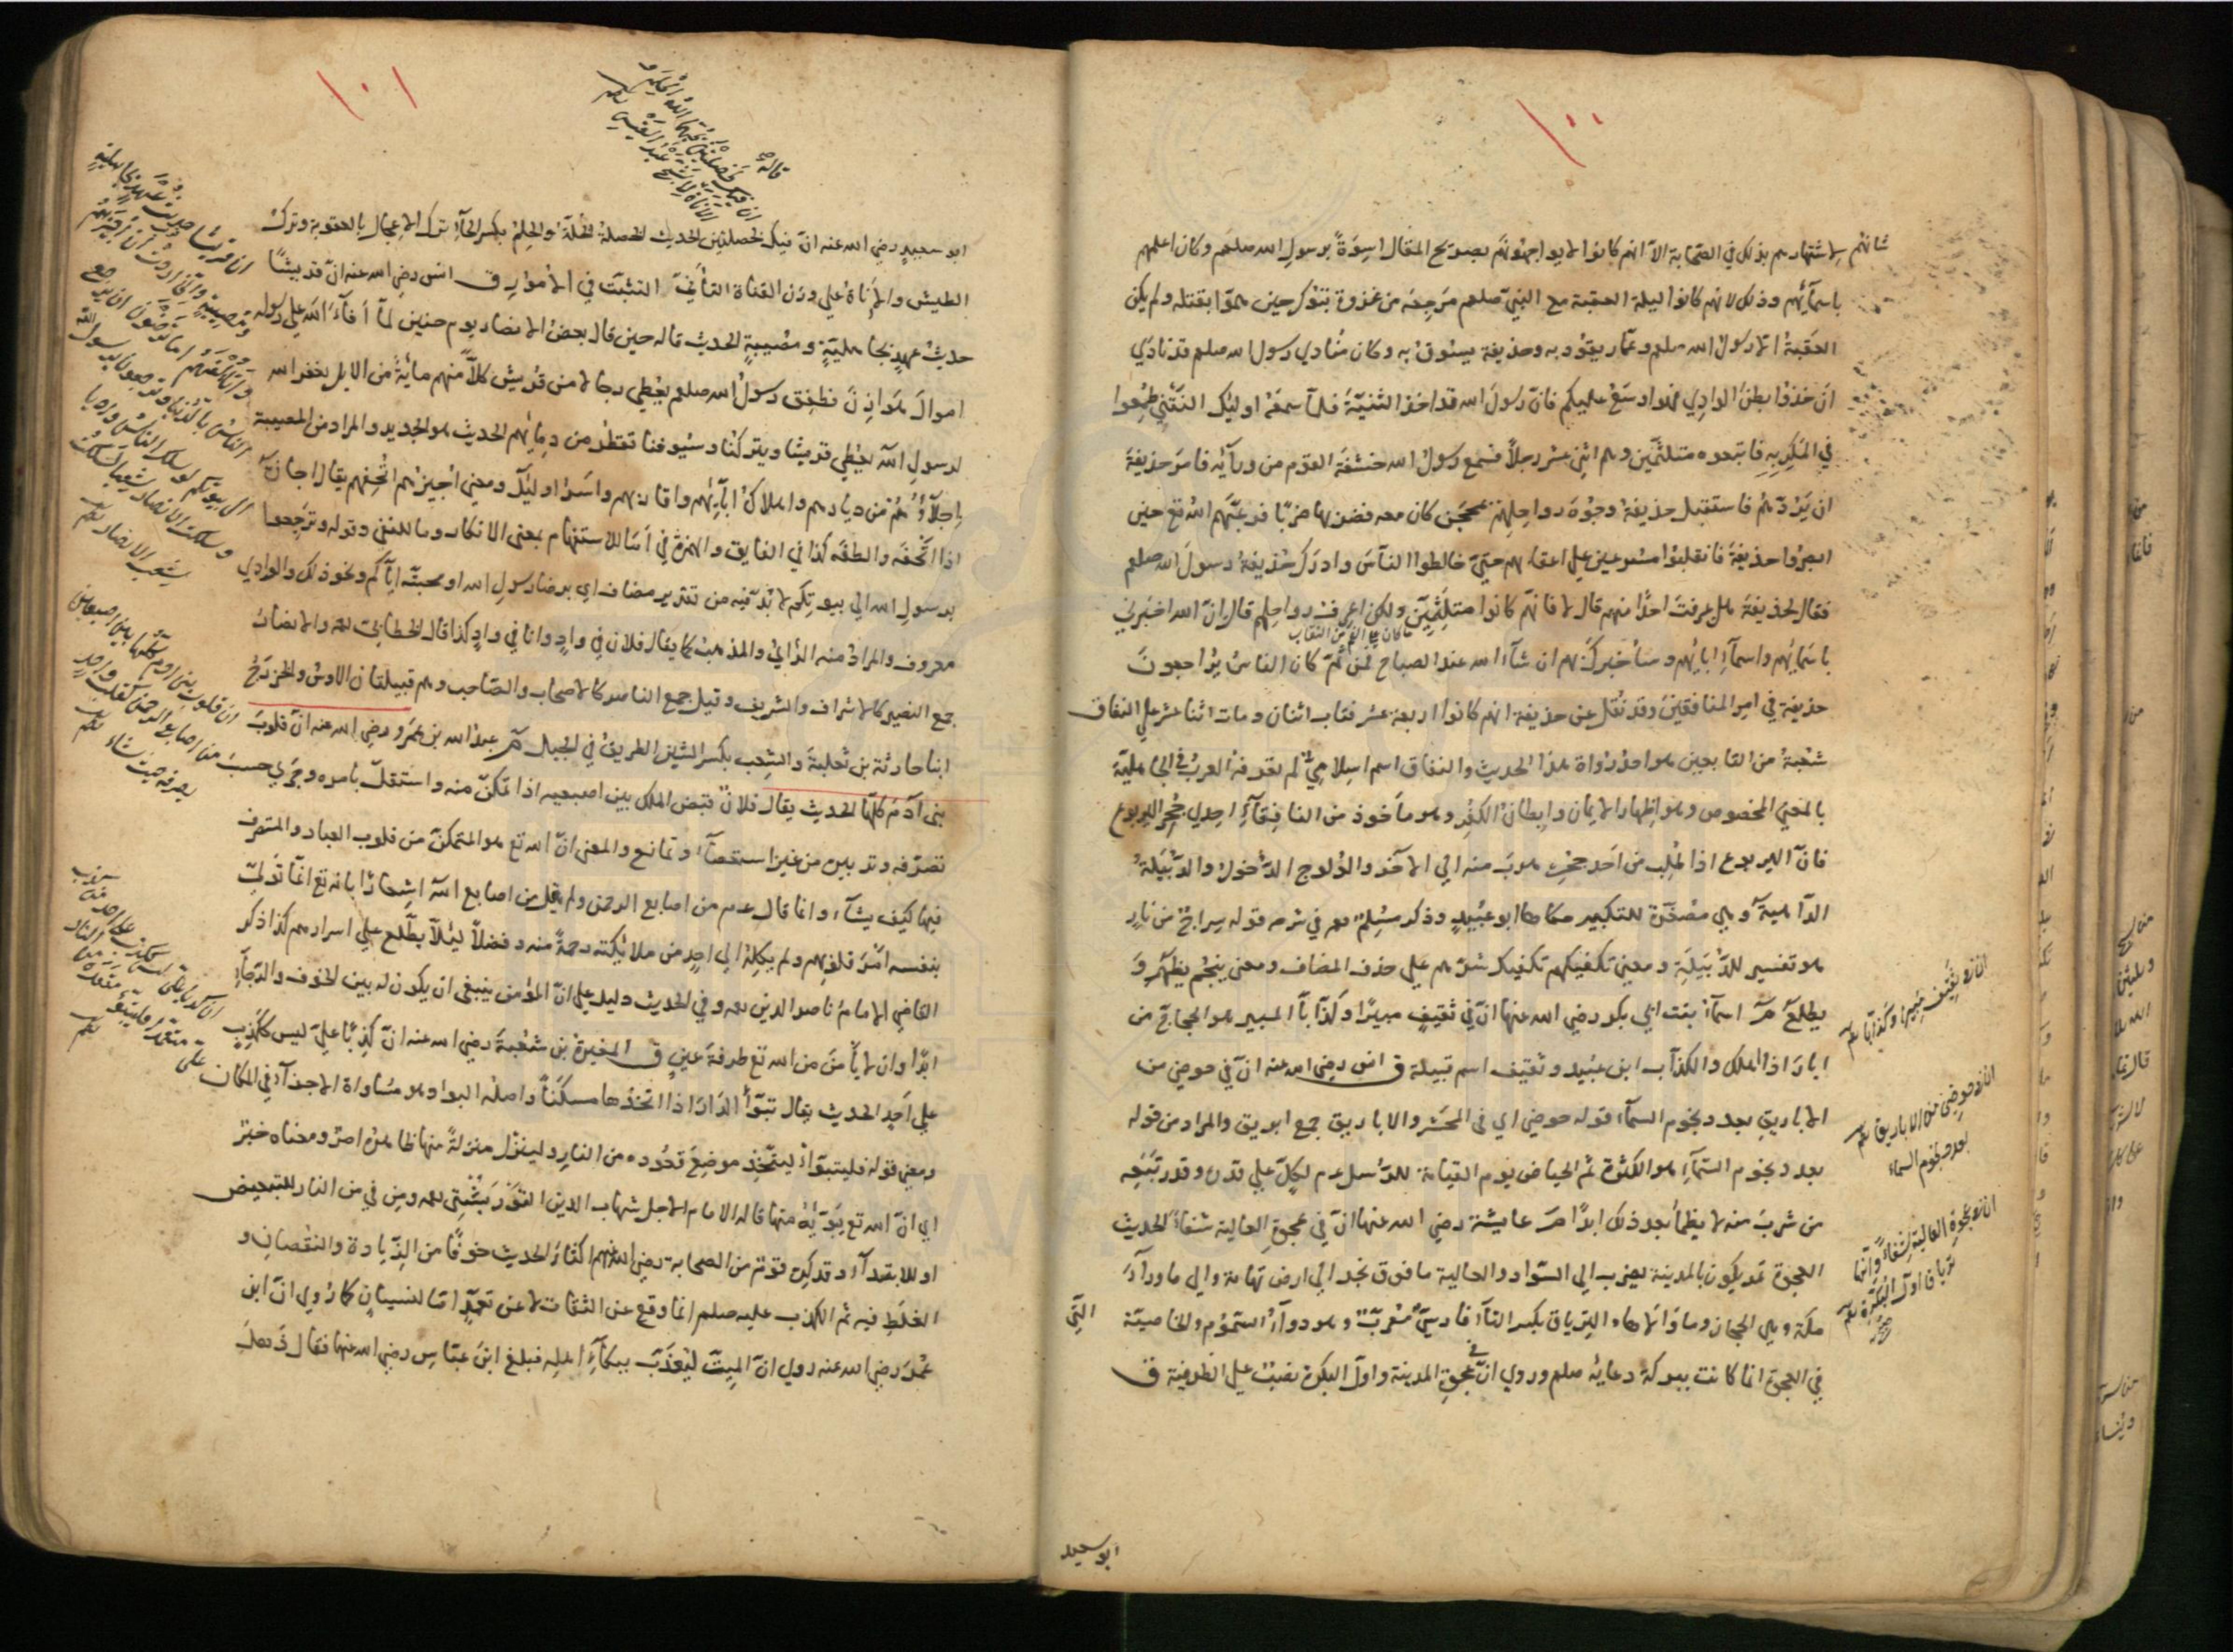 ١٠٠
شانهم لاشتهارهم بذلك في الصحابة الا انهم كانوا لا يواجهونهم بصريح المقال اسوة برسول الله صلعم وكان اعلمهم
باسمائهم وذلك لانهم كانوا ليلة العقبة مع النبي صلعم مرجعه من غزوة تبوك حين هموا بقتله ولم يكن
العقبة الا رسول الله صلعم وعمار يقود به وحذيفة يسوق به وكان منادي رسول الله صلعم قد نادي
ان خذوا بطن الوادي فهو اوسع عليكم فان رسول الله قد اخذ الثنية فلما سمعه اوليك النفر طمعوا
في المكر به فاتبعوه متلثمين وهم اثني عشر رجلا فسمع رسول الله خشفة القوم من ورآئه فامر حذيفة
ان يردهم فاستقبل حذيفة وجوه رواحلهم بمحجن كان معه فضربها ضربا فرعبهم الله تع حين
ابصروا حذيفة فانقلبوا مسرعين علي اعقابهم حتي خالطوا الناس وادرك حذيفة رسول الله صلعم
فقال لحذيفة هل عرفت احدا منهم قال لا فانهم كانوا متلثمين ولكن اعرف رواحلهم قال ان الله اخبرني
باسمائهم واسمآء ابائهم وسأخبركم بهم ان شآء الله عند الصباح فمن ثم كان الناس يراجعون
حذيفة في امر المنافقين وقد نقل عن حذيفة انهم كانوا اربعة عشر فتاب اثنان ومات اثنا عشر علي النفاق
شعبة من التابعين هو احد رواة هذا الحديث والنفاق اسم اسلامي لم تعرفه العرب في الجاهلية
بالمعني المخصوص وهو اظهار الايمان وابطان الكفر وهو مأخوذ من النافقآء احدي جحر اليربوع
فان اليربوع اذا طلب من احد جحريه هرب منه الي الآخر والولوج الدخول والدبيلة
الداهية وهي مصغرة للتكبير حكاها ابو عبيد وذكر مسلم رحه في شرحه قوله سراج من نار
هو تفسير للدبيلة ومعني تكفيكهم تكفيك شرهم علي حذف المضاف ومعني ينجم يظهر و
يطلع م اسمآء بنت ابي بكر رضي الله عنها ان في ثقيف مبيرا وكذابا المبير هو الحجاج من
ابار اذا اهلك والكذاب ابن عبيد وثقيف اسم قبيلة ق انس رضي الله عنه ان في حوضي من
الاباريق بعدد نجوم السمآء قوله حوضي اي في المحشر والاباريق جمع ابريق والمراد من قوله
بعدد نجوم السمآء هو الكثرة ثم الحياض يوم القيامة للرسل عم لكل علي قدره وقدر تبعه
من شرب منه لا يظمأ بعد ذلك ابدا م عايشة رضي الله عنها ان في عجوة العالية شفاء الحديث
العجوة تمر يكون بالمدينة يضرب الي السواد والعالية ما فوق نجد الي ارض تهامة والي ما ورآء
مكة وهي الحجاز وما والاها والترياق بكسر التآء فارسي معرب وهو دوآء السموم والخاصية التي
في العجوة انما كانت ببركة دعائه صلعم وروي ان في عجوة المدينة واول البكرة نصب علي الظرفية ق
ان في ثقيف مبيرا وكذابا
ان في حوضي من الاباريق
بعدد نجوم السماء
ان في عجوة العالية شفاء وانها
ترياق اول البكرة
ابو سعيد
١٠١
قاله
ان فيك خصلتين يحبهما الله الحلم و
الاناة لاشج عبد القيس
ابو سعيد رضي الله عنه ان فيك لخصلتين الحديث الخصلة الخلة والحلم بكسر الحآء ترك الاعجال بالعقوبة وترك
الطيش والاناة علي وزن القناة التأني التثبت في الامور ق انس رضي الله عنه ان قريشا
حديث عهد بجاهلية ومصيبة الحديث قاله حين قال بعض الانصار يوم حنين لما افآء الله علي رسوله
اموال هوازن فطفق رسول الله صلعم يعطي رجالا من قريش كلا منهم مائة من الابل يغفر الله
لرسول الله يعطي قريشا ويتركنا وسيوفنا تقطر من دمائهم الحديث هو الجديد والمراد من المصيبة
اجلاؤهم من ديارهم واهلاك ابائهم واقاربهم واسر اوليك ومعني اجيزهم اتحفهم يقال اجازه
اذا اتحفه والطفه كذا في الفايق والهمزة في اما للاستفهام بمعني الانكار وما للنفي وقوله وترجعوا
برسول الله الي بيوتكم لا بد فيه من تقدير مضاف اي برضا رسول الله او محبته اياكم ونحو ذلك والوادي
معروف والمراد منه الرأي والمذهب كما يقال فلان في واد وانا في واد كذا قال الخطابي رحه والانصار
جمع النصير كالاشراف والشريف وقيل جمع الناصر كالاصحاب والصاحب وهم قبيلتان الاوس والخزرج
ابنا حارثة بن ثعلبة والشعب بكسر الشين الطريق في الجبال م عبد الله بن عمرو رضي الله عنه ان قلوب
بني آدم كلها الحديث يقال فلان قبض الملك بين اصبعيه اذا تمكن منه واستقل بامره وجري حسب
تصرفه وتدبيره من غير استقصآء وتمانع والمعني ان الله تع هو المتمكن من قلوب العباد والمتصرف
فيها كيف يشآء وانما قال عم من اصابع الرحمن ولم يقل من اصابع الله اشعارا بانه تع انما تولي
بنفسه امر قلوبهم ولم يكله الي احد من ملائكته رحمة منه وفضلا لئلا يطلع علي اسرارهم كذا ذكر
القاضي الامام ناصر الدين رحه وفي الحديث دليل علي ان المؤمن ينبغي ان يكون له بين الخوف والرجآء
ابدا وان لا يأمن من الله تع طرفة عين ق المغيرة بن شعبة رضي الله عنه ان كذبا علي ليس ككذب
علي احد الحديث يقال تبوأ الدار اذا اتخذها مسكنا واصله البواء وهو مساواة الاجزآء في المكان
ومعني قوله فليتبوأ ليتخذ موضع قعوده من النار ولينزل منزلة منها ظاهره امر ومعناه خبر
اي ان الله تع يبوئه منها قاله الامام الاجل شهاب الدين التوربشتي رحه ومن في من النار للتبعيض
او للابتدآء وقد كره قوم من الصحابة رضي الله عنهم اكثار الحديث خوفا من الزيادة والنقصان و
الغلط فيه ثم الكذب عليه صلعم انما وقع عن الثقات لا عن تعمد اما لنسيان كما روي ان ابن
عمر رضي الله عنه روي ان الميت ليعذب ببكآء اهله فبلغ ابن عباس رضي الله عنها فقال ذهل
ان قريشا حديث عهد بجاهلية
ومصيبة واني اردت ان اجيزهم
واتألفهم اما ترضون ان يرجع
الناس بالدنيا وترجعون برسول الله
الي بيوتكم لو سلك الناس واديا
وسلكت الانصار شعبا لسلكت
شعب الانصار
ان قلوب بني ادم كلها بين اصبعين
من اصابع الرحمن كقلب واحد
يصرفه حيث شاء
ان كذبا علي ليس ككذب علي احد من كذب
علي متعمدا فليتبوأ مقعده من النار